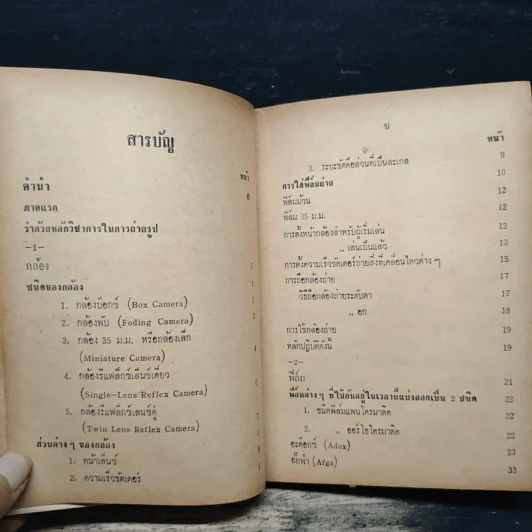 สารบัญ
หน้า
คำนำ
ภาคแรก
ว่าด้วยหลักวิชาการในการถ่ายรูป
-1-
กล้อง 1
ชนิดของกล้อง 1
1. กล้องบ๊อกซ์ (Box Camera) 1
2. กล้องพับ (Foding Camera)
3. กล้อง 35 ม.ม. หรือกล้องเล็ก
(Miniature Camera)
4. กล้องรีแฟล็กซ์เล็นซ์เดี่ยว
(Single-Lens Reflex Camera)
5. กล้องรีแฟล็กซ์เล็นซ์คู่
(Twin Lens Reflex Camera)
ส่วนต่าง ๆ ของกล้อง
1. หน้าเล็นซ์
2. ความเร็วชัตเตอร์
หน้า
3. ระยะชัดคือส่วนที่เป็นสะเกล 9
การใส่ฟีล์มถ่าย 10
ฟีล์มม้วน 12
ฟีล์ม 35 ม.ม. 12
การตั้งหน้ากล้องสำหรับผู้เริ่มเล่น 12
,, เล่นเป็นแล้ว 13
การตั้งความเร็วชัตเตอร์ถ่ายสิ่งที่เคลื่อนไหวต่าง ๆ 15
การถือกล้องถ่าย 16
วิธีถือกล้องถ่ายระดับตา 16
,, อก 16
การใช้กล้องถ่าย
หลักปฏิบัติดังนี้
-2-
ฟีล์ม
ฟีล์มต่าง ๆ ที่ใช้กันอยู่ในเวลานี้แบ่งออกเป็น 2 ชนิด 21
1. ชนิดฟีล์มแพนโครมาติค 22
2. ,, ออร์โธโครมาติค 22
อะด๊อกซ์ (Adox) 22
อั๊กฟ่า (Afga) 33